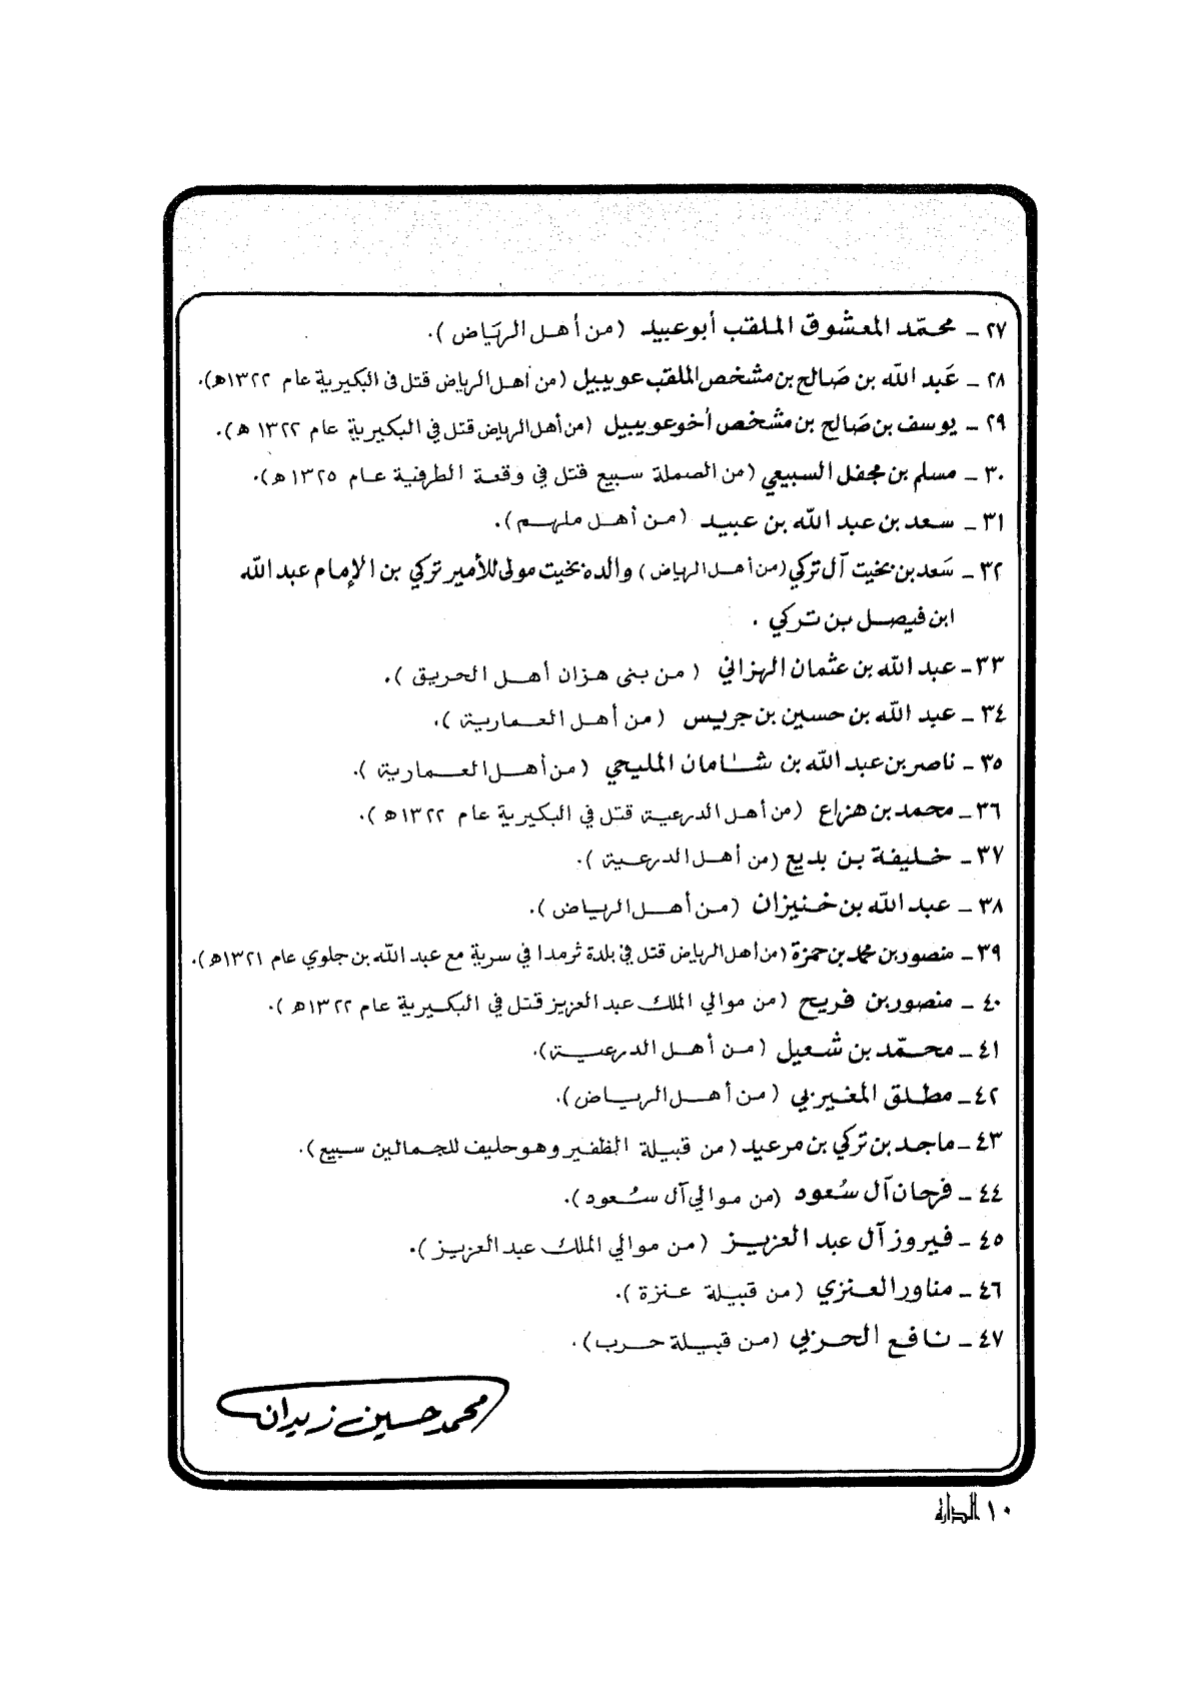 ٢٧ - محمّد المعشوق الملقب أبوعبيد (من أهل الريَاض).
٢٨ - عَبد الله بن صَالح بن مشخص الملقب عويبيل (من أهل الرياض قتل في البكيرية عام ١٣٢٢هـ).
٢٩ - يوسف بن صَالح بن مشخص أخو عويبيل (من أهل الرياض قتل في البكيرية عام ١٣٢٢هـ).
٣٠ - مسلم بن مجفل السبيعي (من الصملة سبيع قتل في وقعة الطرفية عام ١٣٢٥هـ).
٣١ - سعد بن عبد الله بن عبيد (من أهل ملهم).
٣٢ - سَعد بن بخيت آل تركي (من أهل الرياض) والده بخيت مولى للأمير تركي بن الإمام عبد الله
ابن فيصل بن تركي .
٣٣ - عبد الله بن عثمان الهزاني (من بني هزان أهل الحريق).
٣٤ - عبد الله بن حسين بن جريس (من أهل العمارية).
٣٥ - ناصر بن عبد الله بن شامان المليحي (من أهل العمارية).
٣٦ - محمد بن هزاع (من أهل الدرعية قتل في البكيرية عام ١٣٢٢هـ).
٣٧ - خليفة بن بديع (من أهل الدرعية).
٣٨ - عبد الله بن خنيزان (من أهل الرياض).
٣٩ - منصور بن محمد بن حمزة (من أهل الرياض قتل في بلدة ثرمدا في سرية مع عبد الله بن جلوي عام ١٣٢١هـ).
٤٠ - منصور بن فريح (من موالي الملك عبد العزيز قتل في البكيرية عام ١٣٢٢هـ).
٤١ - محمّد بن شعيل (من أهل الدرعية).
٤٢ - مطلق المغيربي (من أهل الرياض).
٤٣ - ماجد بن تركي بن مرعيد (من قبيلة الظفير وهو حليف للجمالين سبيع).
٤٤ - فرحان آل سُعود (من موالي آل سُعود).
٤٥ - فيروز آل عبد العزيز (من موالي الملك عبد العزيز).
٤٦ - مناور العنزي (من قبيلة عنزة).
٤٧ - نافع الحربي (من قبيلة حرب).
محمد حسين زيدان
١٠ الدارة